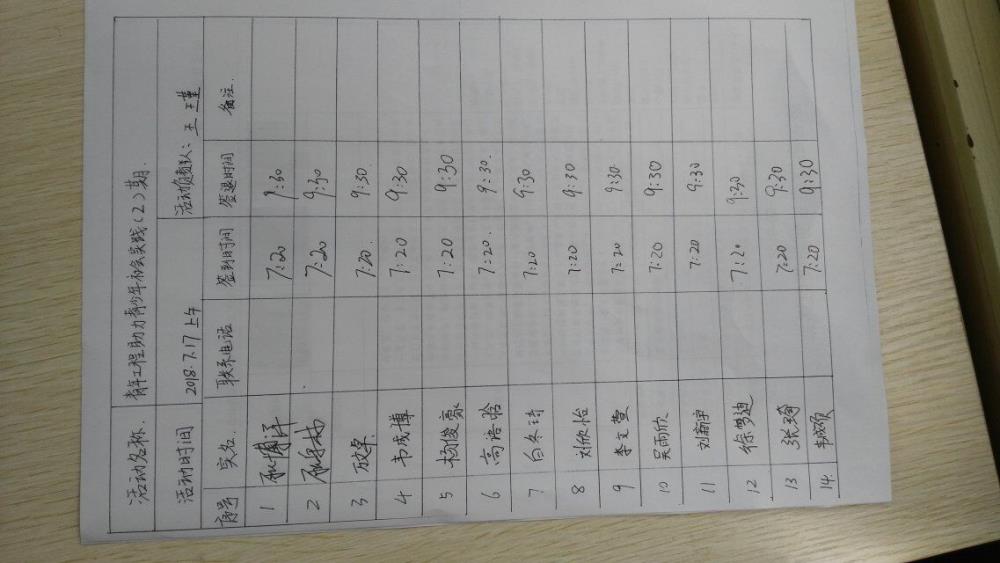 活动名称. 青年工程助力青少年社会实践(2)期.
活动时间 2018.7.17上午 活动负责人: 王
序号 实名 联系电话 签到时间 签退时间 备注.
1 7:20 9:30
2 7:20 9:30
3 7:20. 9:30.
4 韦成博 7:20 9:30
5 杨俊豪 7:20 9:30
6 高语晗 7:20. 9:30.
7 白冬诗 7:20 9:30
8 刘欣怡 7:20 9:30
9 李文萱 7:20 9:30
10 吴雨欣 7:20 9:30
11 刘新宇 7:20 9:30
12 徐梦迪 7:20 9:30
13 张琦 7:20 9:30
14. 7:20 9:30